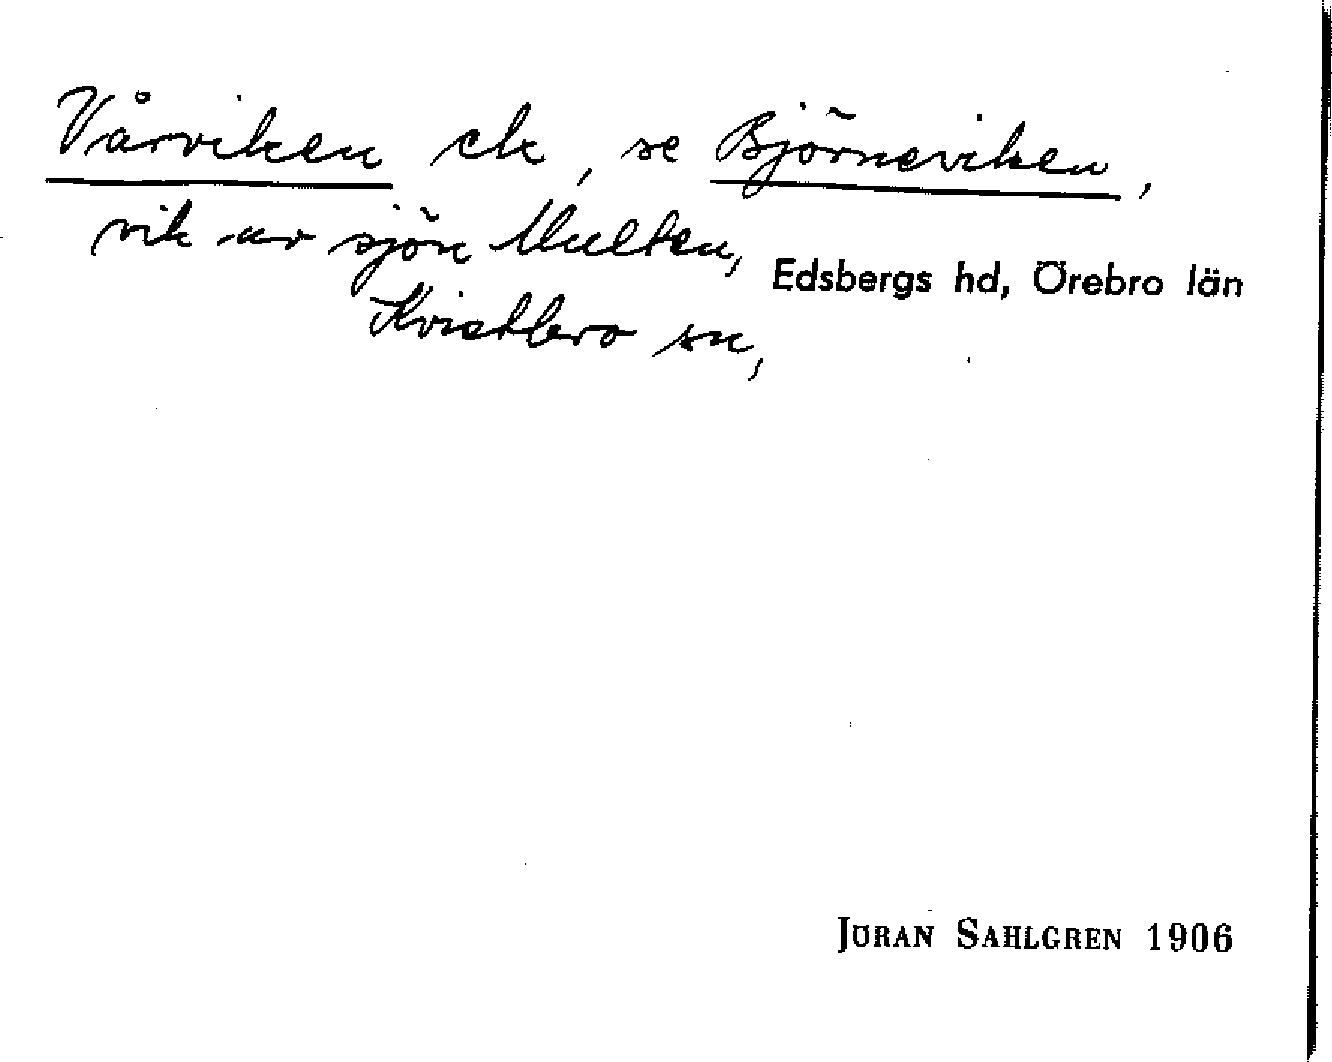 Vårviken ek, se Björneviken,
vik av sjön Multen,
Edsbergs hd, Örebro län
Kvistbro sn,
JÖRAN SAHLGREN 1906